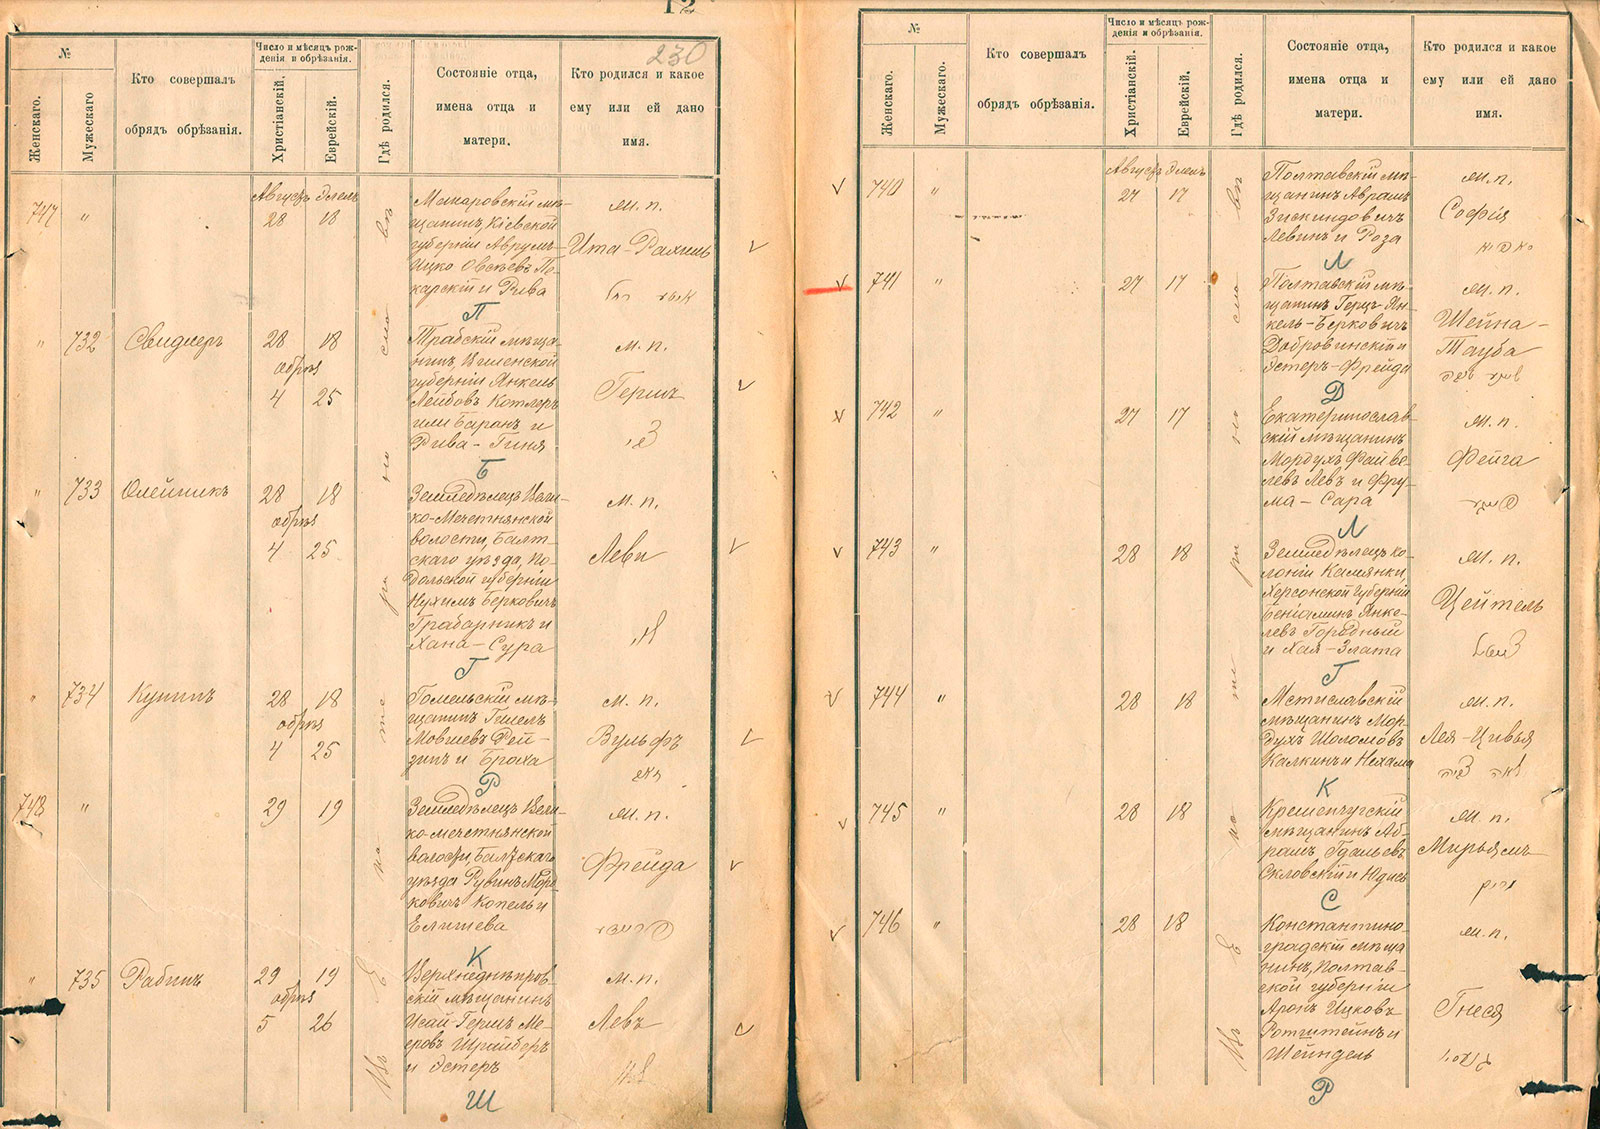 12
230
№
Женскаго.
Мужескаго
Кто совершалъ
обрядъ обрѣзанія.
Число и мѣсяцъ рож-
денія и обрѣзанія.
Христіанскій.
Еврейскій.
Гдѣ родился.
Состояніе отца,
имена отца и
матери.
Кто родился и какое
ему или ей дано
имя.
747
"
Августъ Элелъ
28 18
щанинъ, Кіевской
губерніи Аврумъ-
Ицко Овсѣевъ По-
карскій и Рива
П
ж. п.
Ита-Рахиль
"
732
Свиджеръ
28 18
обрѣз
4 25
Трабскій мѣща-
нинъ, Виленской
губерніи Янкель
Лейбовъ Котлеръ
или Баранъ и
Рива-Гиня
Б
м. п.
Гершъ
"
733
Олейникъ
28 18
обрѣз
4 25
Земледѣлецъ Вели-
ко-Мечетнянской
волости, Балт-
скаго уѣзда, По-
дольской губерніи
Нухимъ Берковичъ
Грабарникъ и
Хана-Сура
Г
м. п.
Леви
"
734
Купинъ
28 18
обрѣз
4 25
Гомельскій мѣ-
щанинъ Гешелъ
Мовшевъ Рей-
зинъ и Броха
Р
м. п.
Вульфъ
748
"
29 19
Земледѣлецъ Вели-
ко-Мечетнянской
волости, Балтскаго
уѣзда Рувинъ Мор-
ковичъ Копель и
Елишева
К
ж. п.
Фрейда
"
735
Рабинъ
29 19
обрѣз
5 26
Верхнеднѣпров-
скій мѣщанинъ
Исай-Гершъ Ме-
еровъ Шрайберъ
и Эстеръ
Ш
м. п.
Левъ
№
Женскаго.
Мужескаго.
Кто совершалъ
обрядъ обрѣзанія.
Число и мѣсяцъ рож-
денія и обрѣзанія.
Христіанскій.
Еврейскій.
Гдѣ родился.
Состояніе отца,
имена отца и
матери.
Кто родился и какое
ему или ей дано
имя.
740
"
Августъ Элелъ
27 17
Полтавскій мѣ-
щанинъ Аврамъ
Зискиндовичъ
Левинъ и Роза
Л
ж. п.
Софія
741
"
27 17
Полтавскій мѣ-
щанинъ Герцъ-Ян-
кель-Берковичъ
Добровинскій и
Эстеръ-Фрейда
Д
ж. п.
Шейна-
Тауба
742
"
27 17
Екатеринослав-
скій мѣщанинъ
Мордухъ Файве-
левъ Левъ и Фру-
ма-Сара
Л
ж. п.
Фейга
743
"
28 18
Земледѣлецъ ко-
лоніи Камянки,
Херсонской губерніи
Беніаминъ Янке-
левъ Городный
и Хая-Злата
Г
ж. п.
Цейтель
744
"
28 18
Мстиславскій
мѣщанинъ Мор-
духъ Шоломовъ
Калкинъ и Нехама
К
ж. п.
Лея-Цивья
לאה צביה
745
"
28 18
Кременчугскій
мѣщанинъ Аб-
рамъ Гдальевъ
Скловскій и Юдись
С
ж. п.
Мирьямъ
מרים
746
"
28 18
Константино-
градскій мѣща
нинъ, Полтав-
ской губерніи
Аронъ Ицковъ
Ротштейнъ и
Шейндель
Р
ж. п.
Гнеся